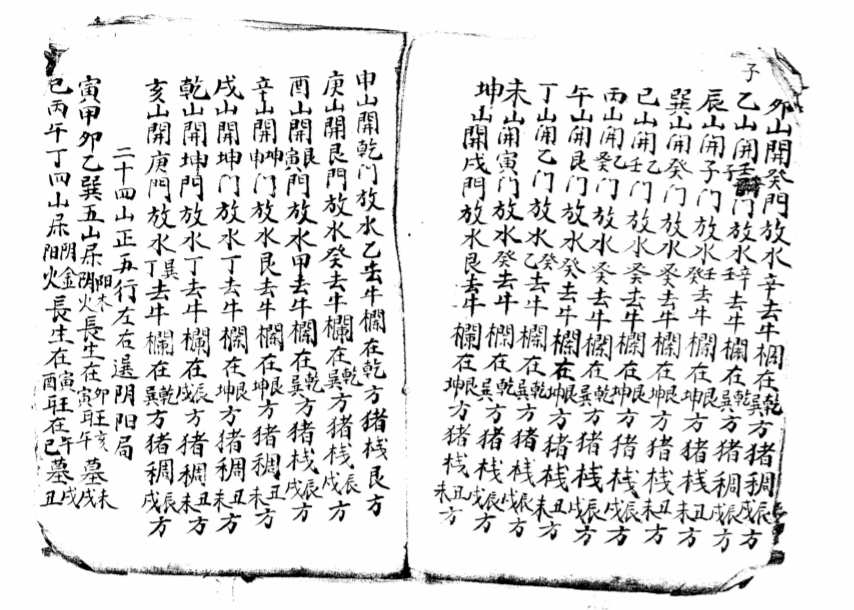 子
卯山開癸門放水辛去牛欄在乾巽方猪稠辰戌方
乙山開壬子門放水辛壬去牛欄在乾巽方猪稠辰戌方
辰山開子门放水壬癸去牛欄在艮坤方猪栈辰戌方
巽山開癸门放水癸去牛欄在艮坤方猪栈丑未方
巳山開乙壬门放水癸去牛欄在艮坤方猪栈丑未方
丙山開乙癸门放水癸去牛欄在艮坤方猪栈辰戌方
午山開艮门放水癸去牛欄在乾巽方猪栈辰戌方
丁山開乙门放水癸乙去牛欄在艮坤方猪栈丑未方
未山開寅门放水癸去牛欄在乾巽方猪栈辰戌方
坤山開戌門放水艮去牛欄在艮坤方猪栈丑未方
申山開乾门放水乙去牛欄在乾方猪栈艮方
庚山開艮門放水癸去牛欄在乾巽方猪栈辰戌方
酉山開艮寅門放水甲去牛欄在乾巽方猪栈辰戌方
辛山開坤申门放水艮去牛欄在艮坤方猪稠丑未方
戌山開坤门放水丁去牛欄在艮坤方猪稠丑未方
乾山開坤門放水丁去牛欄在辰戌方猪稠丑未方
亥山開庚門放水巽丁去牛欄在乾巽方猪稠辰戌方
二十四山正五行左右選阴阳局
寅甲卯乙巽五山屎阳木阴火長生在卯寅旺亥午墓未戌
巳丙午丁四山屎阴金阳火長生在寅酉旺在午巳墓戌丑